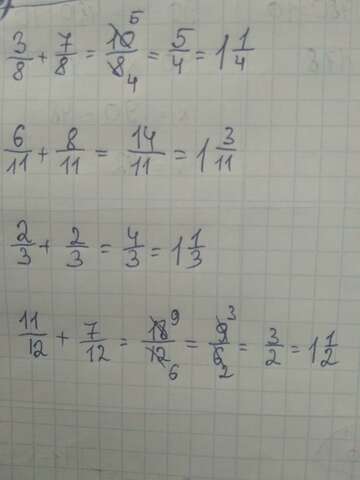 3/8 + 7/8 = 10/8 5 4 = 5/4 = 1 1/4
6/11 + 8/11 = 14/11 = 1 3/11
2/3 + 2/3 = 4/3 = 1 1/3
11/12 + 7/12 = 18/12 9 6 = 9/6 3 2 = 3/2 = 1 1/2